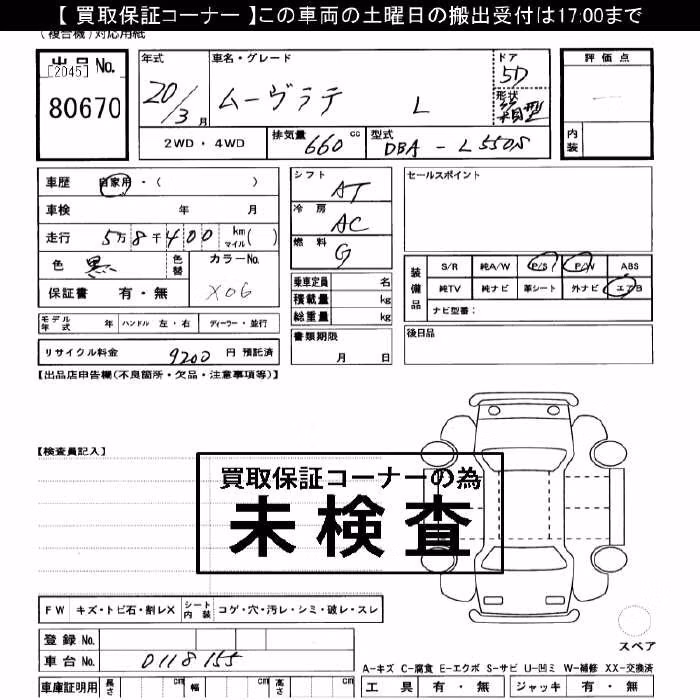 【 買取保証コーナー 】この車両の土曜日の搬出受付は17:00まで
(複合機)対応用紙
出品 No.
[2045]
80670
年式
20/3 月
車名・グレード
ムーヴラテ L
ドア
5D
形状
箱型
2WD ・ 4WD
排気量 660 cc
型式 DBA - L550S
評価点
内装
車歴 自家用・( )
車検 年 月
走行 5万8千400 km マイル( )
色 黒 色替
カラーNo.
X06
保証書 有・無
シフト AT
冷房 AC
燃料 G
乗車定員 名
積載量 kg
総重量 kg
書類期限
月 日
セールスポイント
装備品
S/R 純A/W P/S P/W ABS
純TV 純ナビ 革シート 外ナビ エアB
ナビ型番:
後日品
モデル年式 年 ハンドル 左・右 ディーラー・並行
リサイクル料金 9200 円 預託済
【出品店申告欄(不良箇所・欠品・注意事項等)】
【検査員記入】
買取保証コーナーの為
未検査
FW キズ・トビ石・割レX シート内装 コゲ・穴・汚レ・シミ・破レ・スレ
登録 No.
車台 No. 0118155
車庫証明用 長さ cm 幅 cm 高さ cm
スペア
A-キズ C-腐食 E-エクボ S-サビ U-凹ミ W-補修 XX-交換済
工具 有・無 ジャッキ 有・無